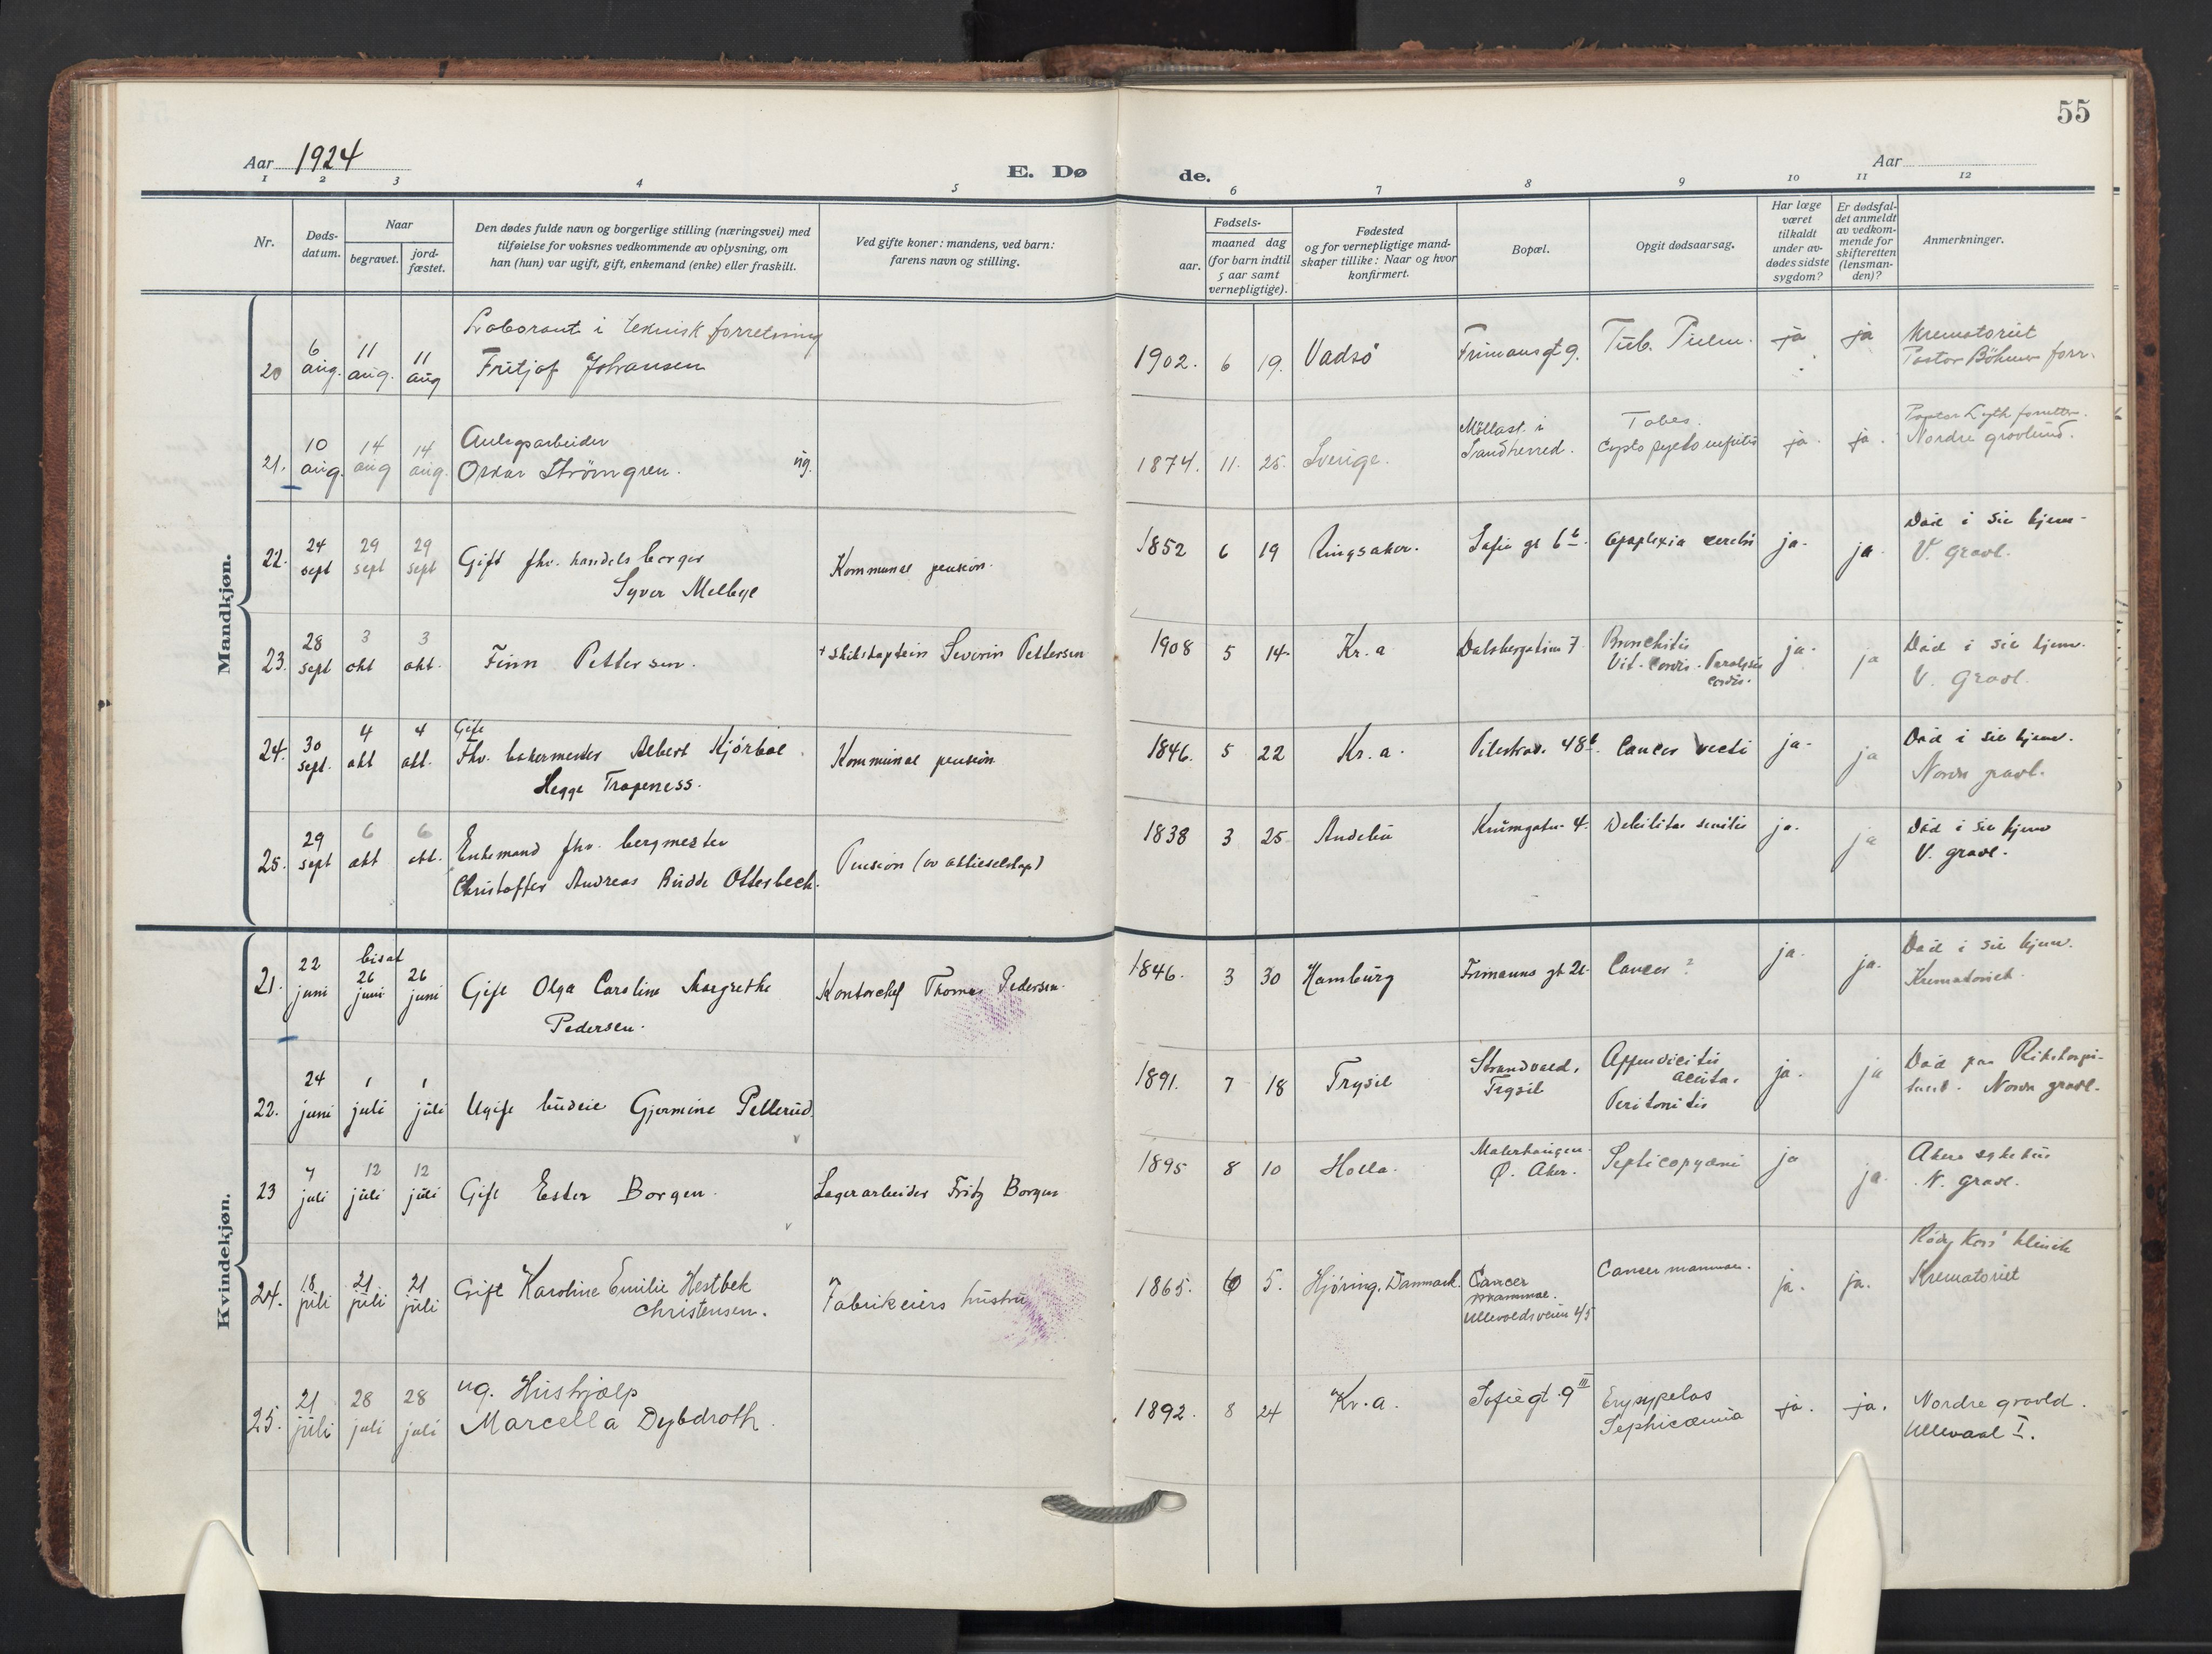 55
Aar 1924
E. Dø de.
Aar
1 2 3 4 5 6 7 8 9 10 11 12
Nr.
Døds-
datum.
Naar
begravet.
jord-
fæstet.
Den dødes fulde navn og borgerlige stilling (næringsvei) med
tilføielse for voksnes vedkommende av oplysning, om
han (hun) var ugift, gift, enkemand (enke) eller fraskilt.
Ved gifte koner: mandens, ved barn:
farens navn og stilling.
Fødsels-
aar.
maaned dag
(for barn indtil
5 aar samt
vernepligtige).
Fødested
og for vernepligtige mand-
skaper tillike: Naar og hvor
konfirmert.
Bopæl.
Opgit dødsaarsag.
Har læge
været
tilkaldt
under av-
dødes sidste
sygdom?
Er dødsfal-
det anmeldt
av vedkom-
mende for
skifteretten
(lensman-
den)?
Anmerkninger.
Mandkjøn.
20 6 aug. 11 aug. 11 aug
Laborant i teknisk forretning
Fritjof Johansen
1902. 6 19. Vadsø Frimansgt 9. Tub. Pulm. ja ja
Krematoriet
Pastor Böhmer forr.
21. 10 aug. 14 aug 14 aug.
Anlegsarbeider
Oskar Strömgren. ug.
1874. 11. 25. Sverige.
Möllast. i
Sandherred.
Tabes.
Cysto pyelo nefritis ja. ja.
Pastor Lyth. forrettet.
Nordre gravlund.
22. 24 sept 29 sept 29 sept
Gift fhv. handelsborger
Syver Melbye
Kommunal pension.
1852 6 19 Ringsaker. Sofie gt 6 b. Apoplexia cerebri ja. ja.
Död i sit hjem.
V. gravl.
23. 28 sept 3 okt 3 okt.
Finn Pettersen.
+ skibskaptein Severin Pettersen
1908 5 14 Kr.a Dalsbergstien 7
Bronchitis
Vit. Cordis. Paralysis
cordis.
ja. ja
Död i sit hjem.
V. Gravl.
24. 30 sept. 4 okt 4 okt.
Gift
Fhv. bakermester Albert Kjörboe
Hegge Trageness.
Kommunal pension
1846. 5 22 Kr.a. Pilestræd. 48 b. Cancer recti ja. ja
Död i sit hjem.
Nordre gravl.
25. 29 sept 6 okt 6 okt.
Enkemand fhv. bergmester
Christoffer Andreas Budde Otterbech.
Pension (av aktieselskap)
1838 3 25 Andebu Krumgaten 4. Debilitas senilis ja. ja
Död i sit hjem
V. gravl.
Kvindekjøn.
21. 22 juni bisat 26 juni 26 juni
Gift Olga Caroline Margrethe
Pedersen.
Kontorchef Thomas Pedersen.
1846. 3 30 Hamburg Frimanns gt 21. Cancer ? ja. ja.
Död i sit hjem.
Krematoriet.
22. 24 juni 1 juli 1 juli
Ugift budeie Gjermine Pellerud
1891. 7 18 Trysil
Strandvold,
Trysil
Appendicitis
acuta.
Peritonitis
ja. ja
Död paa Rikshospi-
talet. Nordre gravl.
23 7 juli 12 juli 12 juli
Gift Ester Borgen.
Lagerarbeider Fritz Borgen
1895 8 10 Holla.
Malerhaugen
Ø. Aker.
Septicopyæmi ja ja.
Akers sykehus
N. gravl.
24. 18 juli 21 juli 21 juli
Gift Karoline Emilie Hestbek
Christensen.
Fabrikeiers hustru
1865. 6 5. Hjöring, Danmark.
Cancer
mammae.
Ullevoldsveien 45
Cancer mammae. ja. ja.
Röde Kors' klinik
Krematoriet
25. 21 juli 28 juli 28 juli
ug. Hushjælp
Marcella Dybdroth.
1892. 8 24 Kr.a. Sofiegt. 9 III
Erysypelas
Sephicæmia
ja. ja.
Nordre gravld.
Ullevaal I.